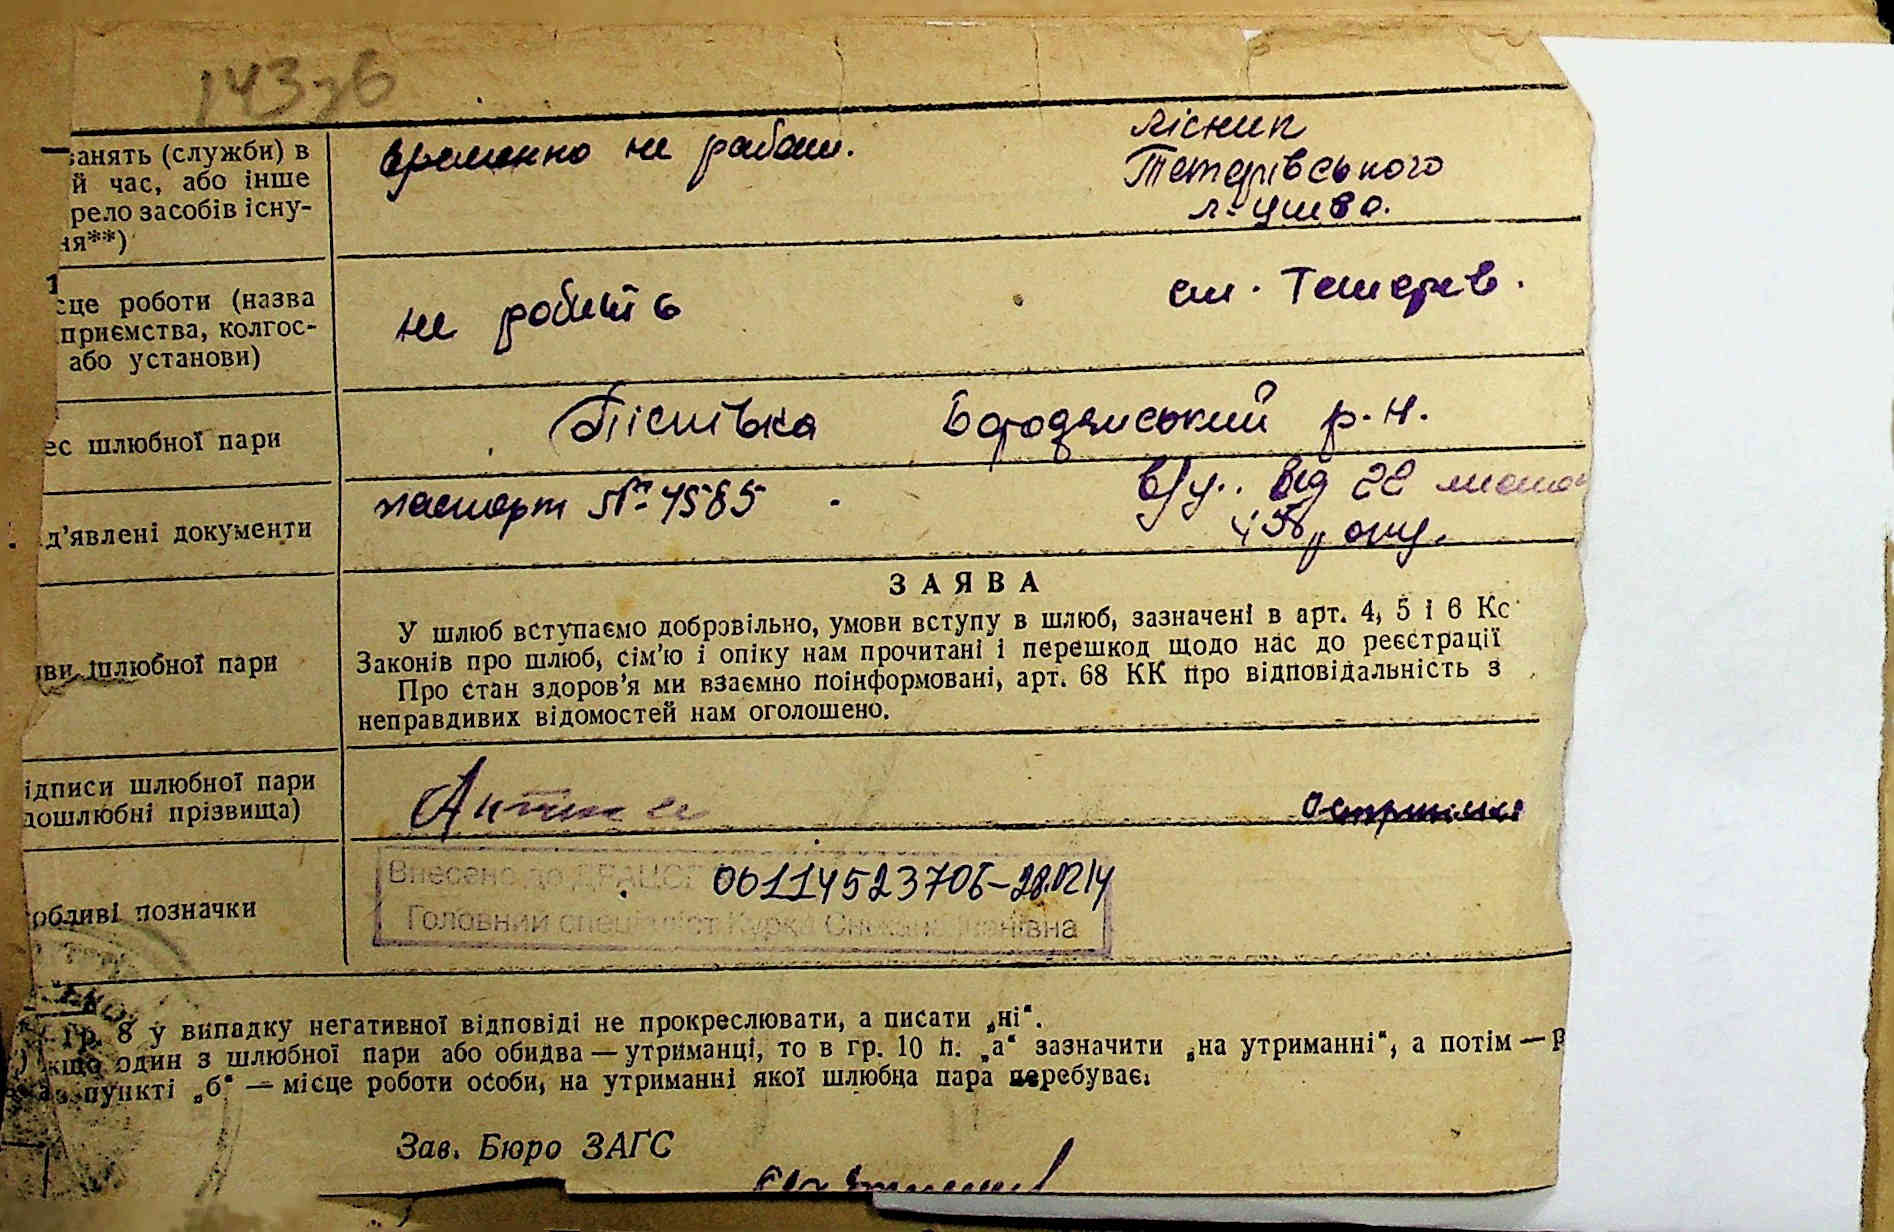 143зв
занять (служби) в
й час, або інше
рело засобів існу-
ня**)
временно не работ.
лісник
Тетерівського
л-цтва.
1
сце роботи (назва
приємства, колгос-
або установи)
не робить
ст. Тетерев.
ес шлюбної пари
Пісківка Бородянський р-н.
д'явлені документи
паспорт № 4585
в/у. від 22
року.
ЗАЯВА
У шлюб вступаємо добровільно, умови вступу в шлюб, зазначені в арт. 4, 5 і 6 Кс
Законів про шлюб, сім'ю і опіку нам прочитані і перешкод щодо нас до реєстрації
Про стан здоров'я ми взаємно поінформовані, арт. 68 КК про відповідальність з
неправдивих відомостей нам оголошено.
иви шлюбної пари
ідписи шлюбної пари
дошлюбні прізвища)
обливі позначки
Внесено до ДРАЦСГ 00114523706-28.02.14
Головний спеціаліст Курка Іванівна
Гр. 8 у випадку негативної відповіді не прокреслювати, а писати „ні“.
кщо один з шлюбної пари або обидва — утриманці, то в гр. 10 п. „а“ зазначити „на утриманні“, а потім — в
пункті „б“ — місце роботи особи, на утриманні якої шлюбна пара перебуває.
Зав. Бюро ЗАГС